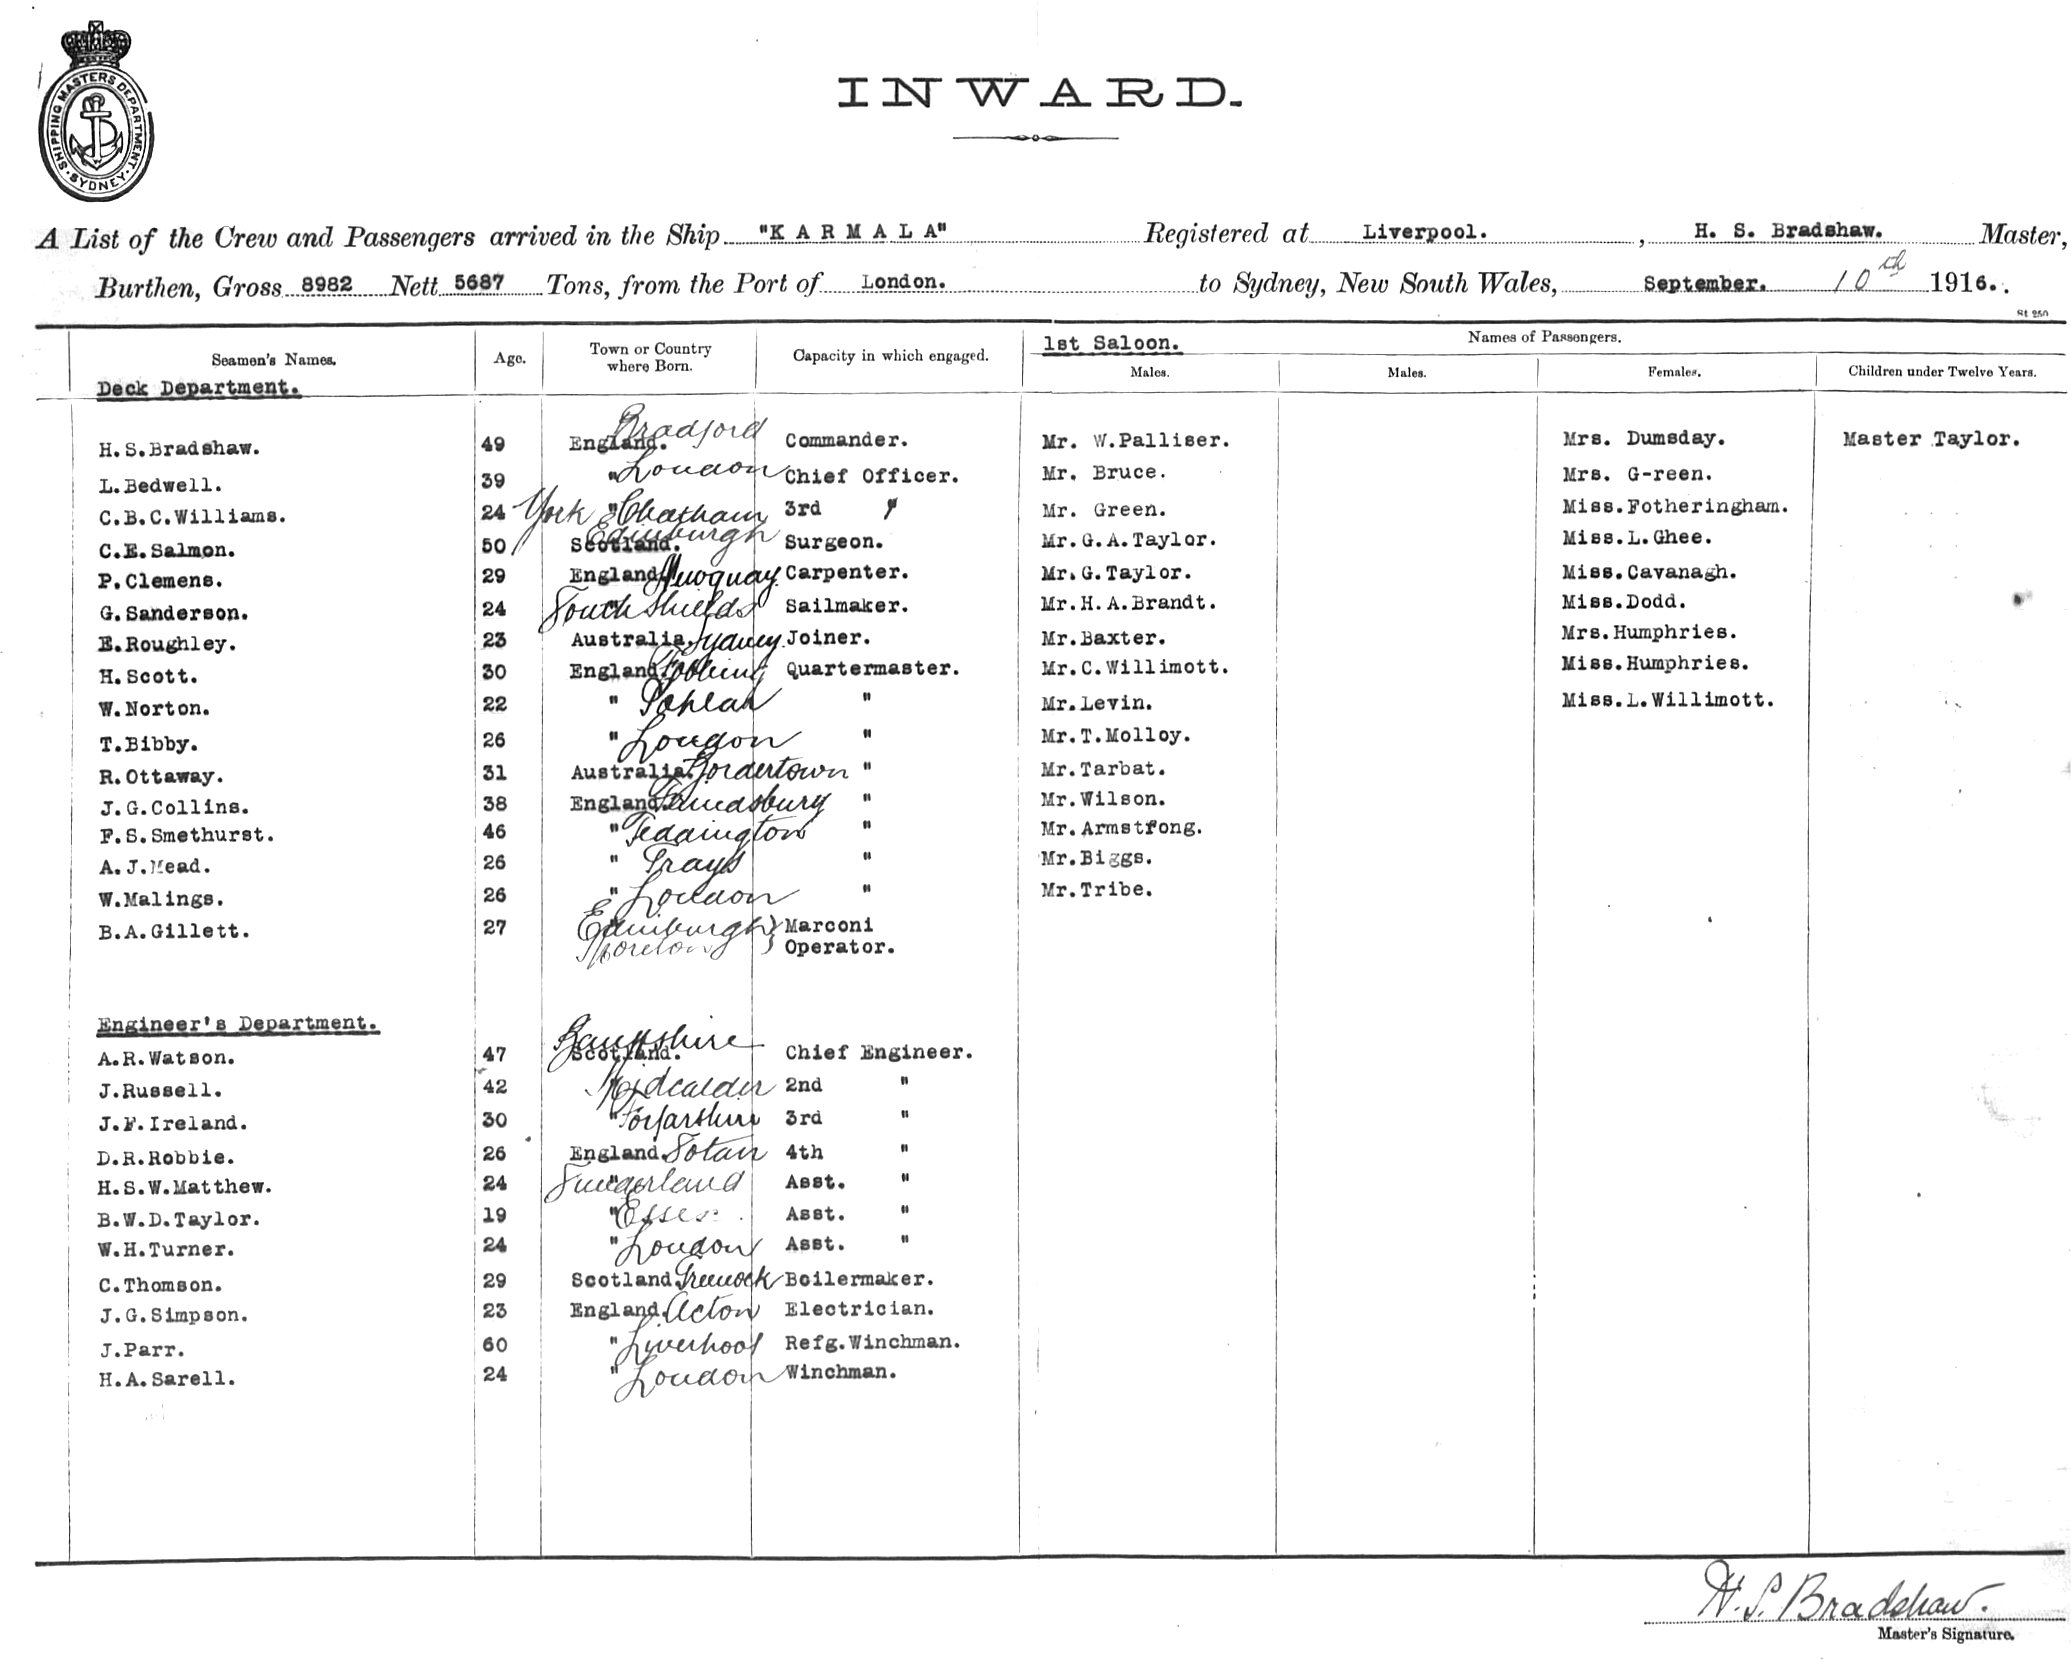 SHIPPING MASTERS DEPARTMENT. SYDNEY.
INWARD.
A List of the Crew and Passengers arrived in the Ship "KARMALA" Registered at Liverpool. , H. S. Bradshaw. Master,
Burthen, Gross 8982 Nett 5687 Tons, from the Port of London. to Sydney, New South Wales, September. 10th 1916.
St 250
Seamen's Names. Age. Town or Country where Born. Capacity in which engaged. 1st Saloon. Names of Passengers.
Deck Department. Males. Males. Females. Children under Twelve Years.
H.S.Bradshaw. 49 England. Bradford Commander. Mr. W.Palliser. Mrs. Dumsday. Master Taylor.
L.Bedwell. 39 " London Chief Officer. Mr. Bruce. Mrs. G-reen.
C.B.C.Williams. 24 York " Chatham 3rd " Mr. Green. Miss.Fotheringham.
C.E.Salmon. 50 Scotland. Edinburgh Surgeon. Mr.G.A.Taylor. Miss.L.Ghee.
P.Clemens. 29 England. Newquay Carpenter. Mr.G.Taylor. Miss.Cavanagh.
G.Sanderson. 24 " South Shields Sailmaker. Mr.H.A.Brandt. Miss.Dodd.
E.Roughley. 23 Australia. Sydney Joiner. Mr.Baxter. Mrs.Humphries.
H.Scott. 30 England. Quartermaster. Mr.C.Willimott. Miss.Humphries.
W.Norton. 22 " " Mr.Levin. Miss.L.Willimott.
T.Bibby. 26 " London " Mr.T.Molloy.
R.Ottaway. 31 Australia. Bordertown " Mr.Tarbat.
J.G.Collins. 38 England. " Mr.Wilson.
F.S.Smethurst. 46 " Teddington " Mr.Armstrong.
A.J.Mead. 26 " Grays " Mr.Biggs.
W.Malings. 26 " London " Mr.Tribe.
B.A.Gillett. 27 Edinburgh Marconi
Operator.
Engineer's Department.
A.R.Watson. 47 Scotland. Banffshire Chief Engineer.
J.Russell. 42 " Midcalder 2nd "
J.F.Ireland. 30 " Forfarshire 3rd "
D.R.Robbie. 26 England. 4th "
H.S.W.Matthew. 24 " Sunderland Asst. "
B.W.D.Taylor. 19 " Essex Asst. "
W.H.Turner. 24 " London Asst. "
C.Thomson. 29 Scotland Greenock Boilermaker.
J.G.Simpson. 23 England. Acton Electrician.
J.Parr. 60 " Liverpool Refg.Winchman.
H.A.Sarell. 24 " London Winchman.
H. S. Bradshaw.
Master's Signature.